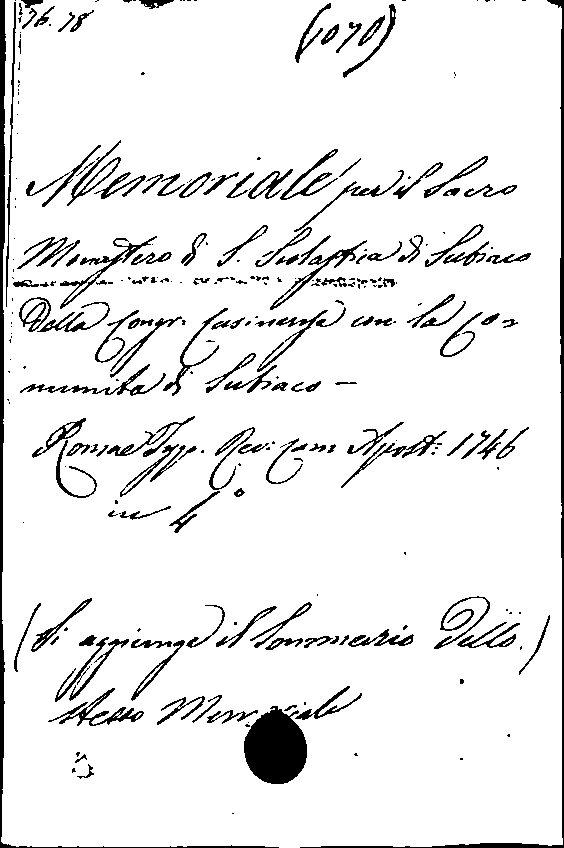 76.78
(1070)
Memoriale per il Sacro
Monastero di S. Scolastica di Subiaco
della Congr. Casinense con la Co=
munità di Subiaco –
Romae Typ. Rev: Cam Apost: 1746
in 4°
(Si aggiunge il Sommario dello.)
stesso Memoriale